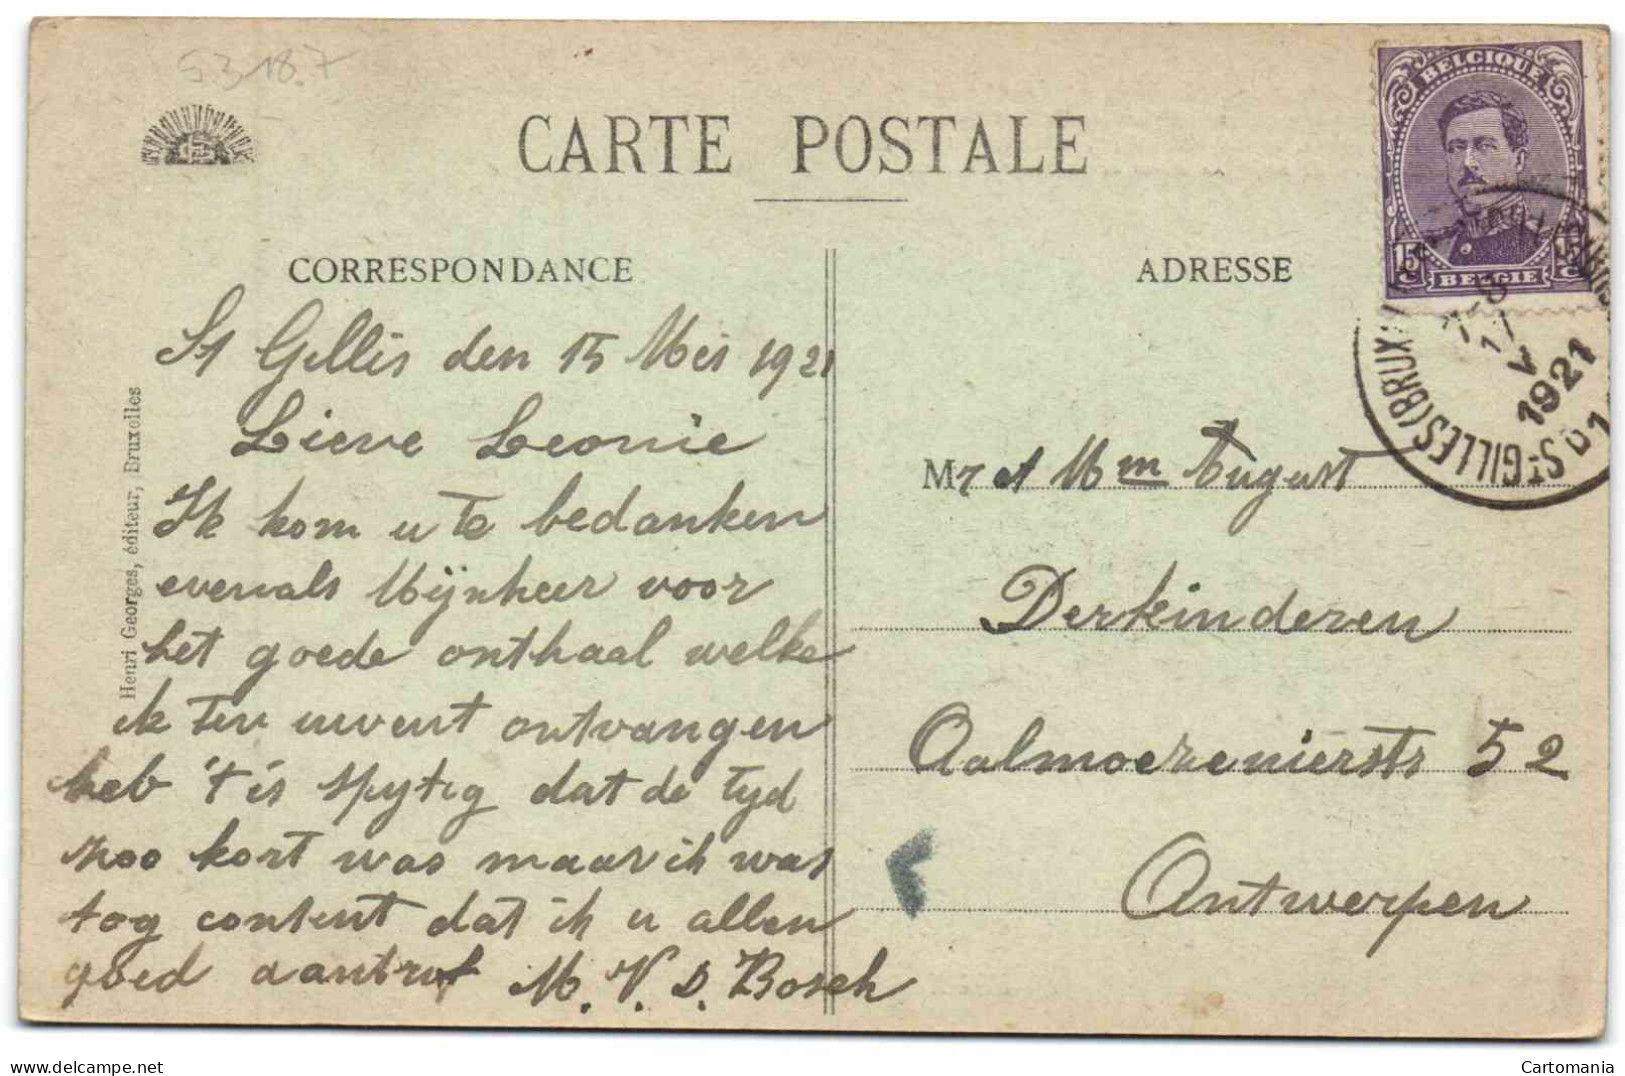 53187
CARTE POSTALE
BELGIQUE
15 C
15 C
BELGIE
CORRESPONDANCE
ADRESSE
St GILLES (BRUX
7-8
17
V
1921
D 1
St Gillis den 15 Mei 1921
Lieve Leonie
Ik kom u te bedanken
evenals Mÿnheer voor
het goede onthaal welke
ik ten uwent ontvangen
heb 't is spytig dat de tyd
zoo kort was maar ik was
tog content dat ik u allen
goed aantrof M. V. D. Bosch
Mr et Mm August
Derkinderen
Aalmoezenierstr 52
Antwerpen
Henri Georges, éditeur, Bruxelles
Cartomania